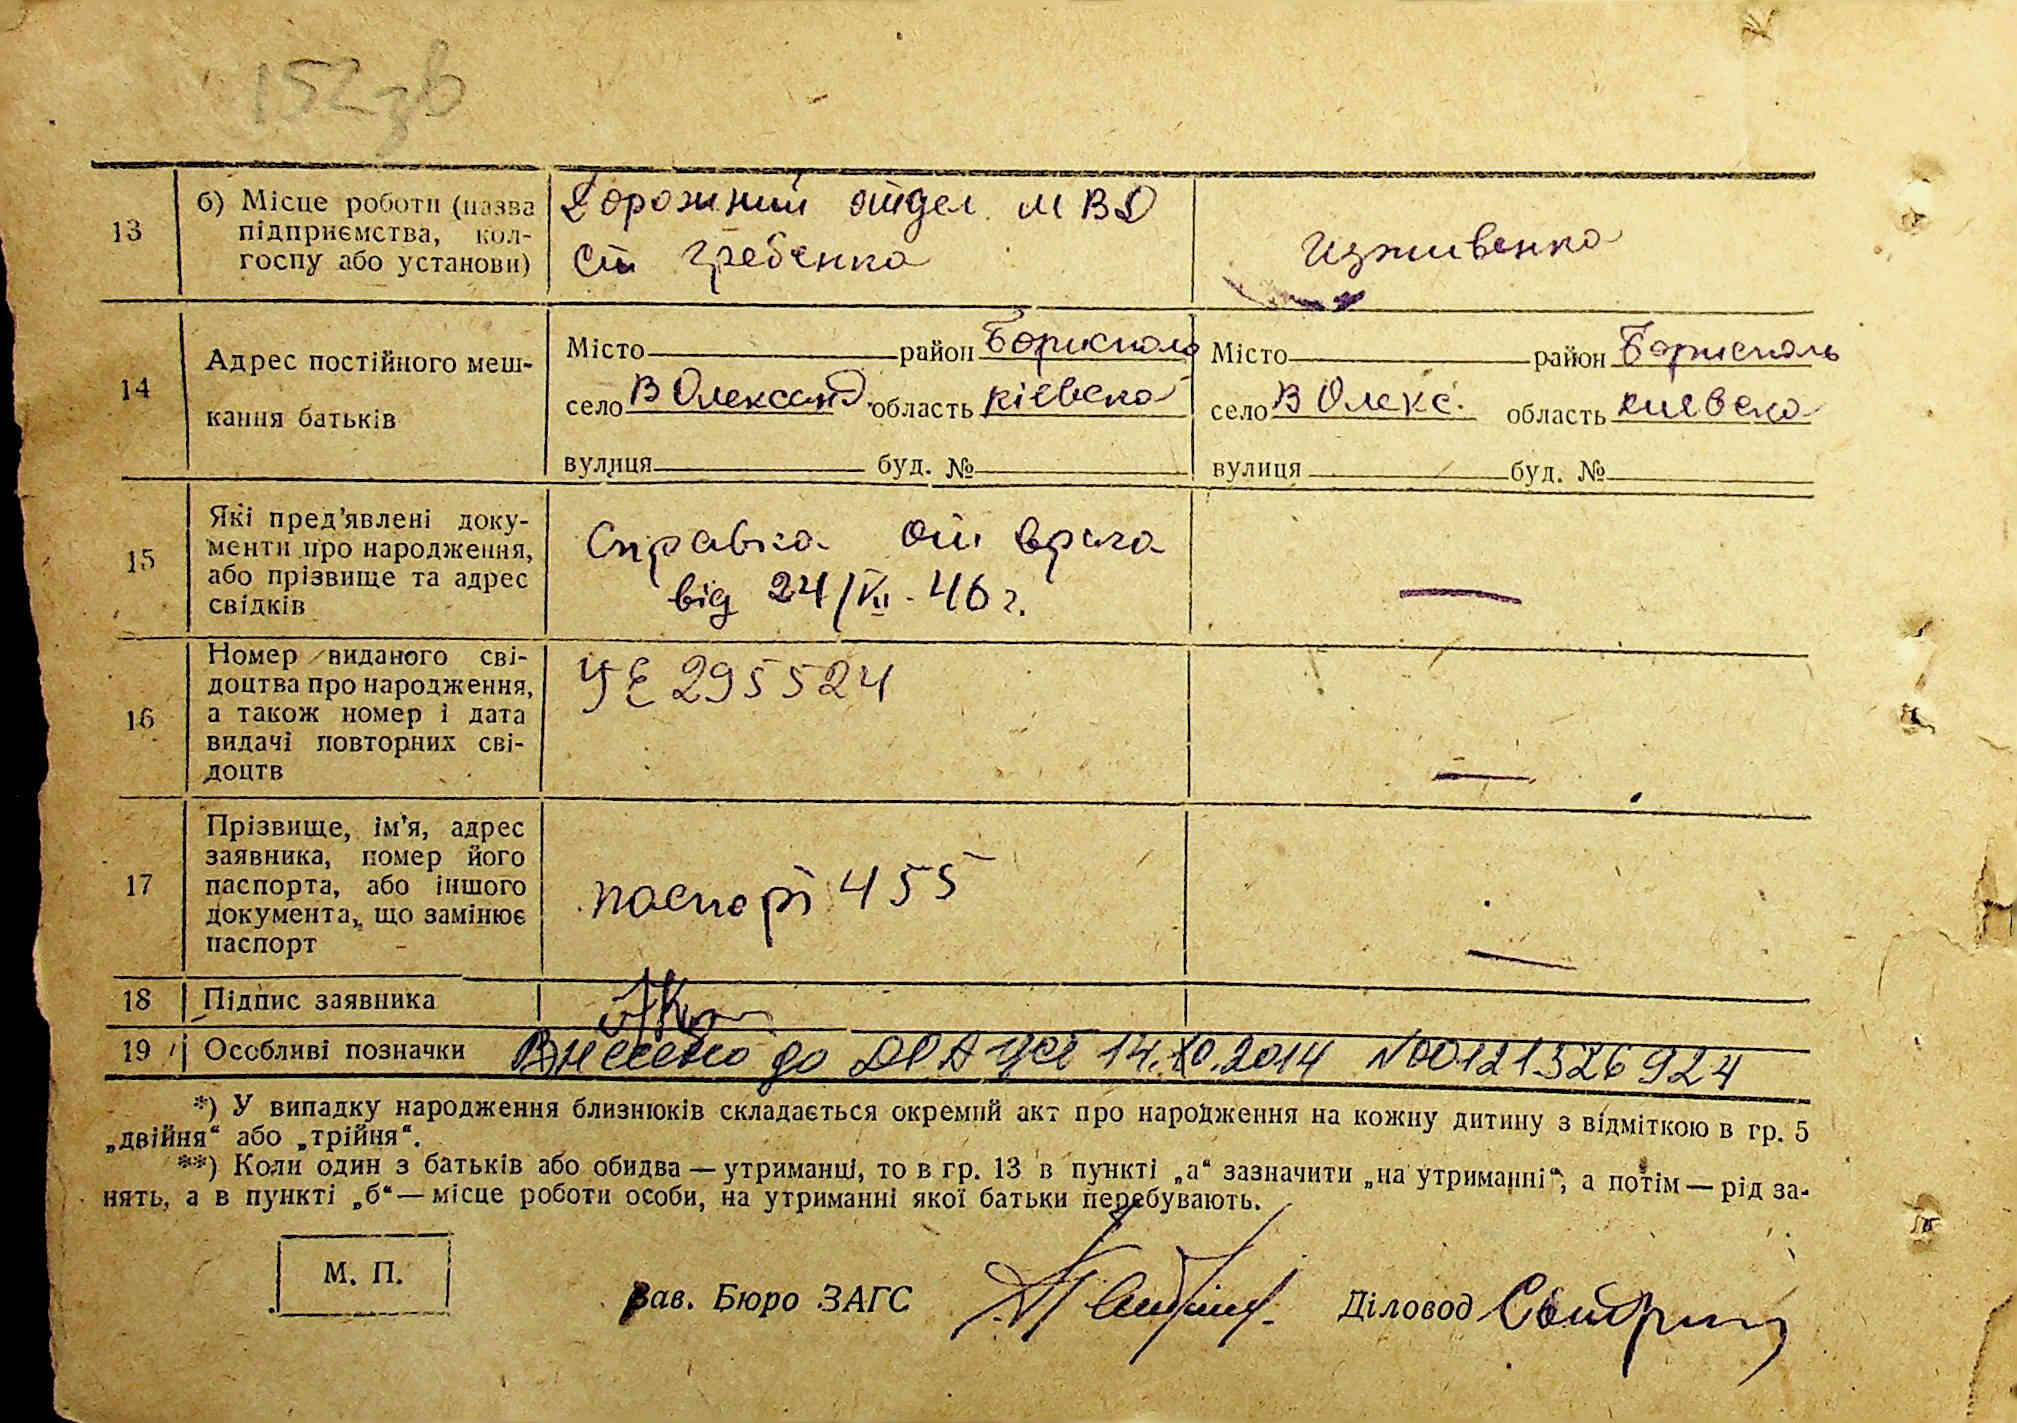 152зв
13
б) Місце роботи (назва
підприємства, кол-
госпу або установи)
Дорожний отдел МВД
ст Гребенка
Иждивенка
14
Адрес постійного меш-
кання батьків
Місто район Борисполь
село В Олександ. область кіевска
вулиця буд. №
Місто район Борисполь
село В Олекс. область киевска
вулиця буд. №
15
Які пред'явлені доку-
менти про народження,
або прізвище та адрес
свідків
Справка от врача
від 24/VII-46 г.
—
16
Номер виданого сві-
доцтва про народження,
а також номер і дата
видачі повторних сві-
доцтв
УЕ 295524
—
17
Прізвище, ім'я, адрес
заявника, номер його
паспорта, або іншого
документа, що замінює
паспорт
паспорт 455
—
18 Підпис заявника
19 Особливі позначки Внесено до ДРАЦСГ 14.10.2014 №00121526924
*) У випадку народження близнюків складається окремий акт про народження на кожну дитину з відміткою в гр. 5
„двійня“ або „трійня“.
**) Коли один з батьків або обидва — утриманці, то в гр. 13 в пункті „а“ зазначити „на утриманні“, а потім — рід за-
нять, а в пункті „б“ — місце роботи особи, на утриманні якої батьки перебувають.
М. П.
Зав. Бюро ЗАГС
Діловод